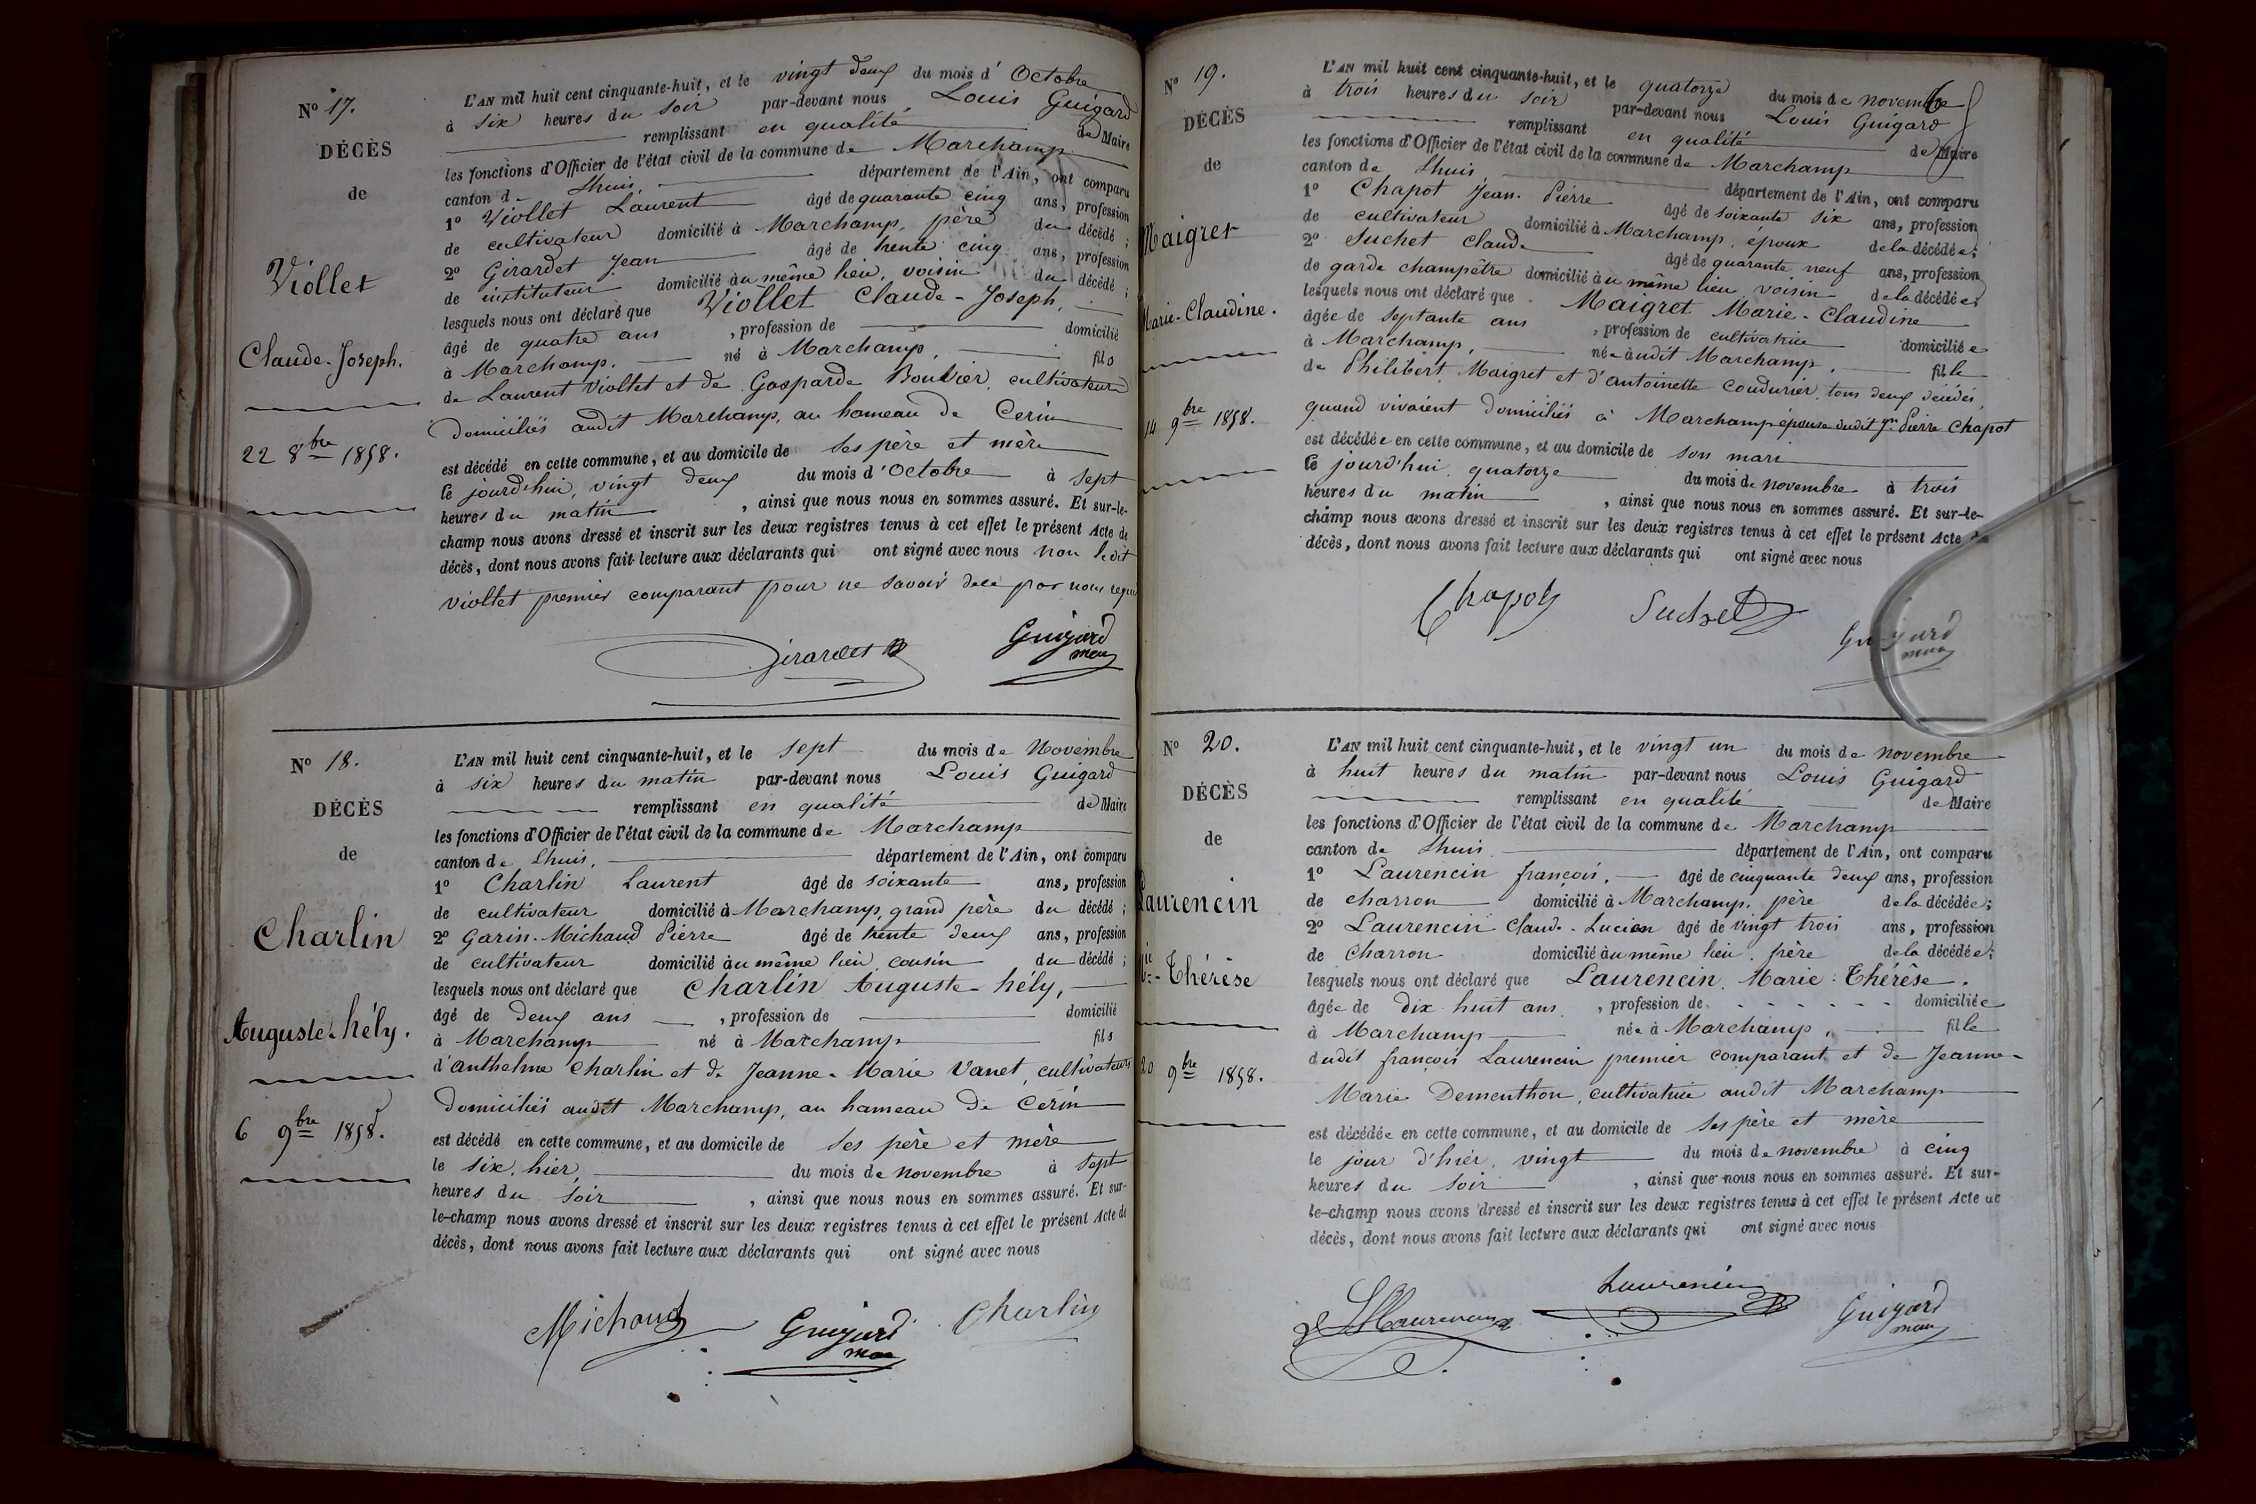 N° 17.
DÉCÈS
de
Viollet
Claude-Joseph.
22 8bre 1858.
L'AN mil huit cent cinquante-huit, et le vingt deux du mois d'Octobre
à six heures du soir par-devant nous, Louis Guigard
remplissant en qualité de Maire
les fonctions d'Officier de l'état civil de la commune de Marchamp
canton de Lhuis, département de l'Ain, ont comparu
1° Viollet Laurent âgé de quarante cinq ans, profession
de cultivateur domicilié à Marchamp, père du décédé;
2° Girardet Jean âgé de trente cinq ans, profession
de instituteur domicilié au même lieu, voisin du décédé;
lesquels nous ont déclaré que Viollet Claude-Joseph,
âgé de quatre ans, profession de domicilié
à Marchamp, né à Marchamp, fils
de Laurent Viollet et de Gasparde Bouvier, cultivateurs
domiciliés audit Marchamp, au hameau de Cerin
est décédé en cette commune, et au domicile de ses père et mère
le jourd'hui, vingt deux du mois d'Octobre à sept
heures du matin, ainsi que nous nous en sommes assuré. Et sur-le-
champ nous avons dressé et inscrit sur les deux registres tenus à cet effet le présent Acte de
décès, dont nous avons fait lecture aux déclarants qui ont signé avec nous non ledit
Viollet premier comparant pour ne savoir de ce par nous requis
Girardet Guigard
maire
N° 18.
DÉCÈS
de
Charlin
Auguste-hély.
6 9bre 1858.
L'AN mil huit cent cinquante-huit, et le sept du mois de Novembre
à six heures du matin par-devant nous Louis Guigard
remplissant en qualité de Maire
les fonctions d'Officier de l'état civil de la commune de Marchamp
canton de Lhuis, département de l'Ain, ont comparu
1° Charlin Laurent âgé de soixante ans, profession
de cultivateur domicilié à Marchamp, grand père du décédé;
2° Garin-Michaud Pierre âgé de trente deux ans, profession
de cultivateur domicilié au même lieu, cousin du décédé;
lesquels nous ont déclaré que Charlin Auguste-hély,
âgé de deux ans, profession de domicilié
à Marchamp né à Marchamp fils
d'Anthelme Charlin et de Jeanne-Marie Vanet, cultivateurs
domiciliés audit Marchamp, au hameau de Cerin
est décédé en cette commune, et au domicile de ses père et mère
le six, hier, du mois de novembre à sept
heures du soir, ainsi que nous nous en sommes assuré. Et sur-
le-champ nous avons dressé et inscrit sur les deux registres tenus à cet effet le présent Acte de
décès, dont nous avons fait lecture aux déclarants qui ont signé avec nous
Michaud Guigard Charlin
maire
6
N° 19.
DÉCÈS
de
Maigret
Marie-Claudine.
14 9bre 1858.
L'AN mil huit cent cinquante-huit, et le quatorze du mois de novembre
à trois heures du soir par-devant nous Louis Guigard
remplissant en qualité de Maire
les fonctions d'Officier de l'état civil de la commune de Marchamp
canton de Lhuis département de l'Ain, ont comparu
1° Chapot Jean-Pierre âgé de soixante six ans, profession
de cultivateur domicilié à Marchamp, époux de la décédée;
2° Suchet Claude âgé de quarante neuf ans, profession
de garde champêtre domicilié au même lieu voisin de la décédée;
lesquels nous ont déclaré que Maigret Marie-Claudine
âgée de septante ans, profession de cultivatrice domiciliée
à Marchamp, née audit Marchamp, fille
de Philibert Maigret et d'antoinette Coudurier, tous deux décédés,
quand vivaient domiciliés à Marchamp épouse dudit Jn Pierre Chapot
est décédée en cette commune, et au domicile de son mari
le jourd'hui quatorze du mois de novembre à trois
heures du matin, ainsi que nous nous en sommes assuré. Et sur-le-
champ nous avons dressé et inscrit sur les deux registres tenus à cet effet le présent Acte de
décès, dont nous avons fait lecture aux déclarants qui ont signé avec nous
Chapot Suchet Guigard
maire
N° 20.
DÉCÈS
de
Laurencin
Mie-Thérèse
20 9bre 1858.
L'AN mil huit cent cinquante-huit, et le vingt un du mois de novembre
à huit heures du matin par-devant nous Louis Guigard
remplissant en qualité de Maire
les fonctions d'Officier de l'état civil de la commune de Marchamp
canton de Lhuis département de l'Ain, ont comparu
1° Laurencin françois, âgé de cinquante deux ans, profession
de charron domicilié à Marchamp, père de la décédée;
2° Laurencin Claude-Lucien âgé de vingt trois ans, profession
de Charron domicilié au même lieu, père de la décédée;
lesquels nous ont déclaré que Laurencin, Marie-Thérèse,
âgée de dix huit ans, profession de domiciliée
à Marchamp née à Marchamp, fille
dudit françois Laurencin premier comparant et de Jeanne-
Marie Dementhon, cultivatrice audit Marchamp
est décédée en cette commune, et au domicile de ses père et mère
le jour d'hier, vingt du mois de novembre à cinq
heures du soir, ainsi que nous nous en sommes assuré. Et sur-
le-champ nous avons dressé et inscrit sur les deux registres tenus à cet effet le présent Acte de
décès, dont nous avons fait lecture aux déclarants qui ont signé avec nous
Laurencin Guigard
maire